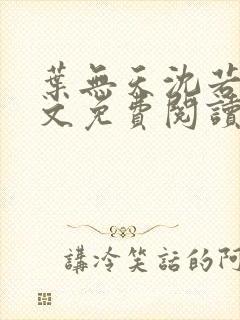 葉無天沈若
文免費閱讀
講冷笑話的阿